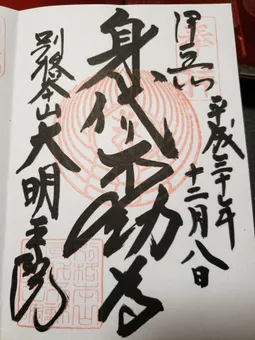 平成三十年十二月八日
身代り不動尊
別格本山大明王院